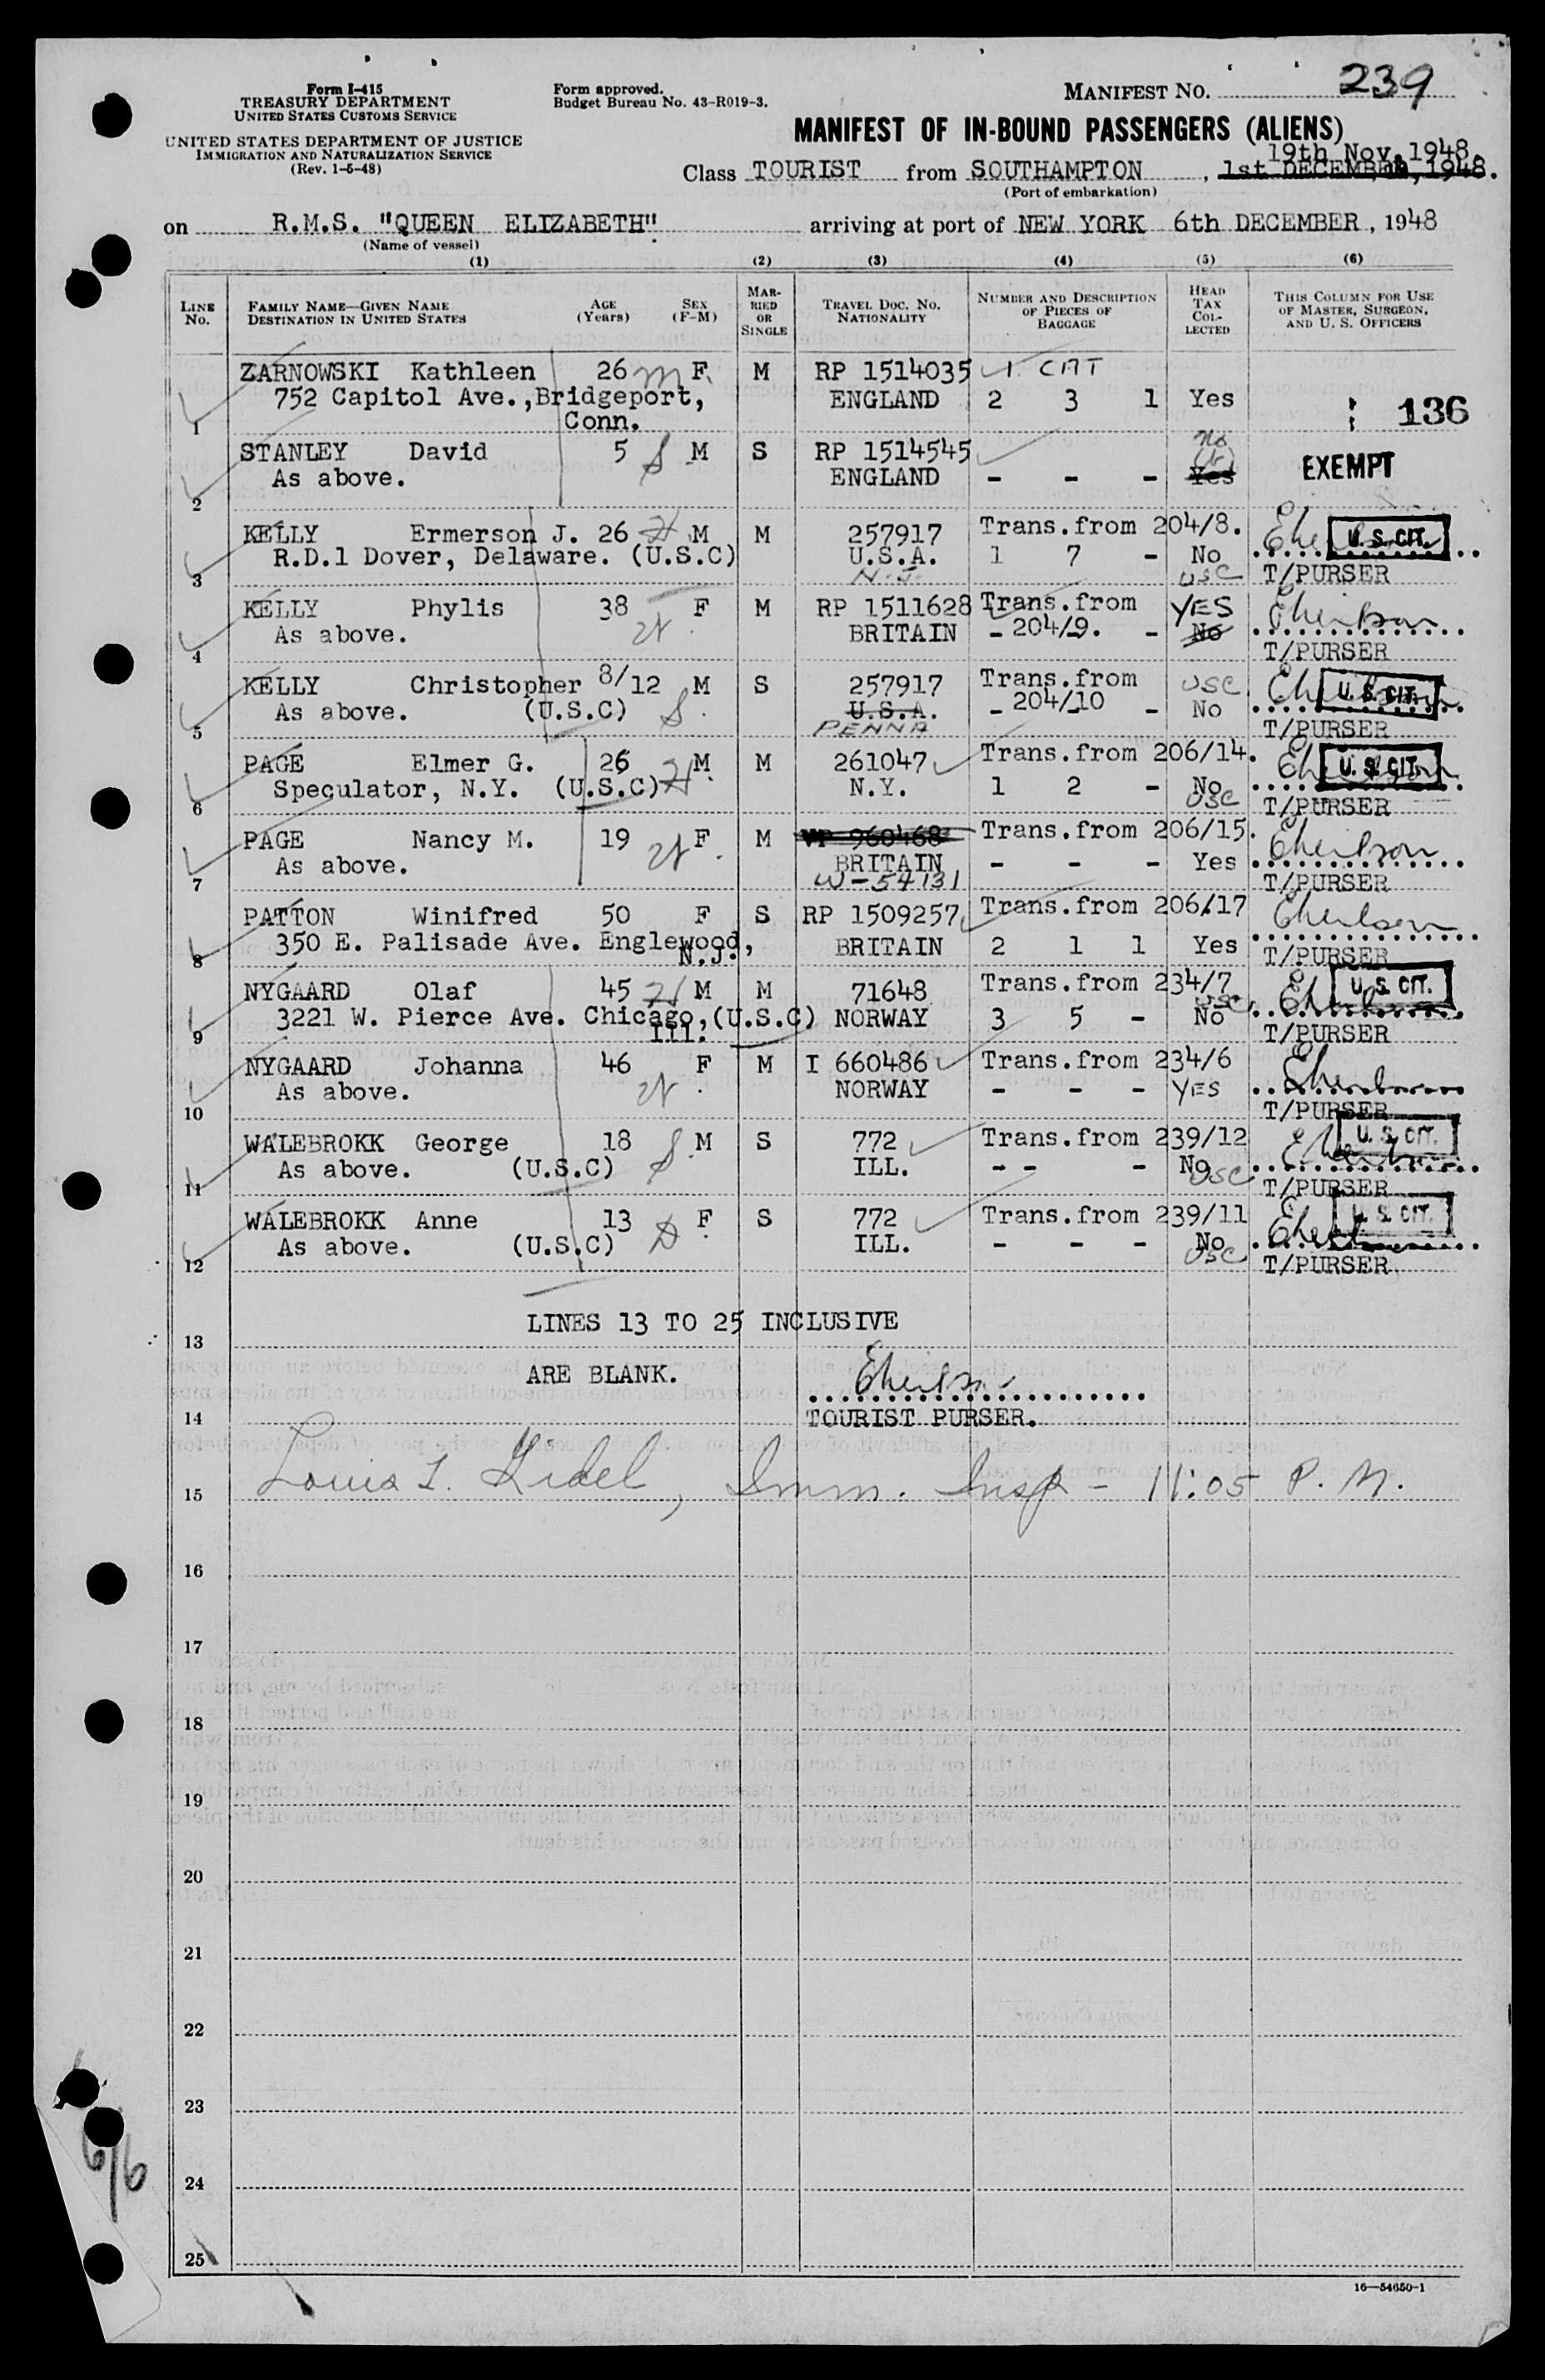 Form I-415
TREASURY DEPARTMENT
UNITED STATES CUSTOMS SERVICE
UNITED STATES DEPARTMENT OF JUSTICE
IMMIGRATION AND NATURALIZATION SERVICE
(Rev. 1-5-48)
Form approved.
Budget Bureau No. 43-R019-3.
MANIFEST NO. 239
MANIFEST OF IN-BOUND PASSENGERS (ALIENS)
19th Nov. 1948.
Class TOURIST from SOUTHAMPTON, 1st DECEMBER, 1948.
(Port of embarkation)
on R.M.S. "QUEEN ELIZABETH" arriving at port of NEW YORK 6th DECEMBER, 1948
(Name of vessel)
(1) (2) (3) (4) (5) (6)
LINE No. FAMILY NAME—GIVEN NAME DESTINATION IN UNITED STATES AGE (Years) SEX (F-M) MARRIED OR SINGLE TRAVEL DOC. NO. NATIONALITY NUMBER AND DESCRIPTION OF PIECES OF BAGGAGE HEAD TAX COLLECTED THIS COLUMN FOR USE OF MASTER, SURGEON, AND U. S. OFFICERS
ZARNOWSKI Kathleen 26 m F M RP 1514035 1 CAT
752 Capitol Ave.,Bridgeport, ENGLAND 2 3 1 Yes 136
1 Conn.
STANLEY David 5 S M S RP 1514545 No
As above. ENGLAND - - - Yes EXEMPT
2
KELLY Ermerson J. 26 M M 257917 Trans.from 204/8. U.S.CIT.
R.D.1 Dover, Delaware. (U.S.C) U.S.A. 1 7 - No
3 N.J. USC T/PURSER
KELLY Phylis 38 F M RP 1511628 Trans.from YES
As above. BRITAIN - 204/9. - No
4 T/PURSER
KELLY Christopher 8/12 M S 257917 Trans.from USC U.S.CIT.
As above. (U.S.C) S U.S.A. - 204/10 - No
5 PENNA T/PURSER
PAGE Elmer G. 26 M M 261047 Trans.from 206/14. U.S.CIT.
Speculator, N.Y. (U.S.C) N.Y. 1 2 - No
6 USC T/PURSER
PAGE Nancy M. 19 F M VP 960468 Trans.from 206/15.
As above. BRITAIN - - - Yes
7 W-54731 T/PURSER
PATTON Winifred 50 F S RP 1509257 Trans.from 206/17
350 E. Palisade Ave. Englewood, BRITAIN 2 1 1 Yes
8 N.J. T/PURSER
NYGAARD Olaf 45 M M 71648 Trans.from 234/7 USC U.S.CIT.
3221 W. Pierce Ave. Chicago,(U.S.C) NORWAY 3 5 - No
9 Ill. T/PURSER
NYGAARD Johanna 46 F M I 660486 Trans.from 234/6
As above. NORWAY - - - YES
10 T/PURSER
WALEBROKK George 18 S M S 772 Trans.from 239/12 U.S.CIT.
As above. (U.S.C) ILL. - - - No
11 USC T/PURSER
WALEBROKK Anne 13 F S 772 Trans.from 239/11 U.S.CIT.
As above. (U.S.C) ILL. - - - No
12 USC T/PURSER
LINES 13 TO 25 INCLUSIVE
13
ARE BLANK.
14 TOURIST PURSER.
15 Louis L. Gidel, Imm. Insp - 11:05 P.M.
16
17
18
19
20
21
22
23
24
25
6/6
16—54650-1